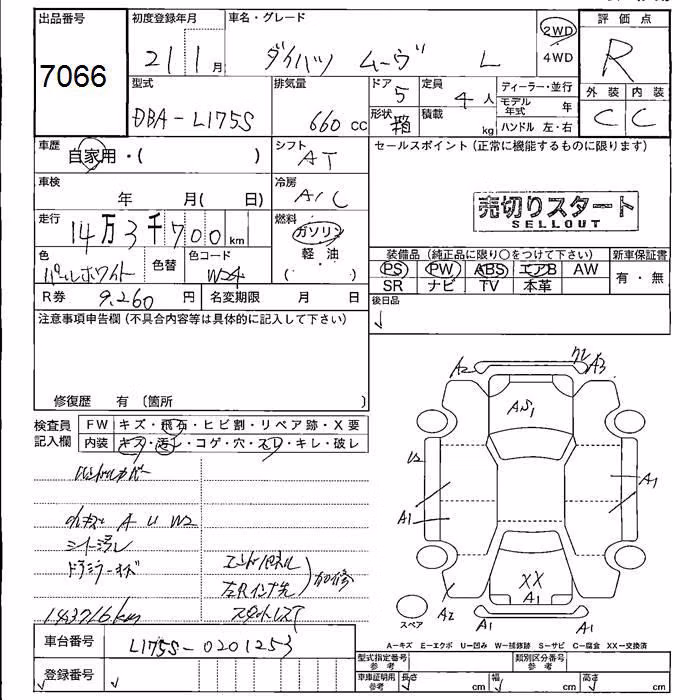 出品番号
7066
初度登録年月
21 1 月
車名・グレード
ダイハツ ムーヴ L
2WD
4WD
評価点
R
型式
DBA-L175S
排気量
660 cc
ドア
5
形状
箱
定員
4 人
積載
kg
ディーラー・並行
モデル年式 年
ハンドル 左・右
外装
内装
C
C
車歴
自家用・( )
シフト
AT
セールスポイント(正常に機能するものに限ります)
売切りスタート
SELLOUT
車検
年 月( 日)
冷房
A/C
走行
14万3千700km
燃料
ガソリン
軽・油
( )
色
パールホワイト
色替
色コード
W24
装備品(純正品に限り○をつけて下さい)
新車保証書
PS PW ABS エアB AW
SR ナビ TV 本革
有・無
R券 9,260 円
名変期限 月 日
後日品
注意事項申告欄(不具合内容等は具体的に記入して下さい)
修復歴 有〔箇所 〕
検査員記入欄
FW キズ・飛石・ヒビ割・リペア跡・X要
内装 キズ・汚レ・コゲ・穴・スレ・キレ・破レ
ハンドルカバー
A U W2
シート汚レ
ドアミラーキズ
エンドパネル
143716km
A2
A3
AS1
U2
A1
A1
A1
XX
A1
A2
A1
A1
スペア
A-キズ E-エクボ U-凹み W-補修跡 S-サビ C-腐食 XX-交換済
車台番号
L175S-0201253
登録番号
型式指定番号
参考
類別区分番号
参考
車庫証明用
参考
長さ cm
幅 cm
高さ cm